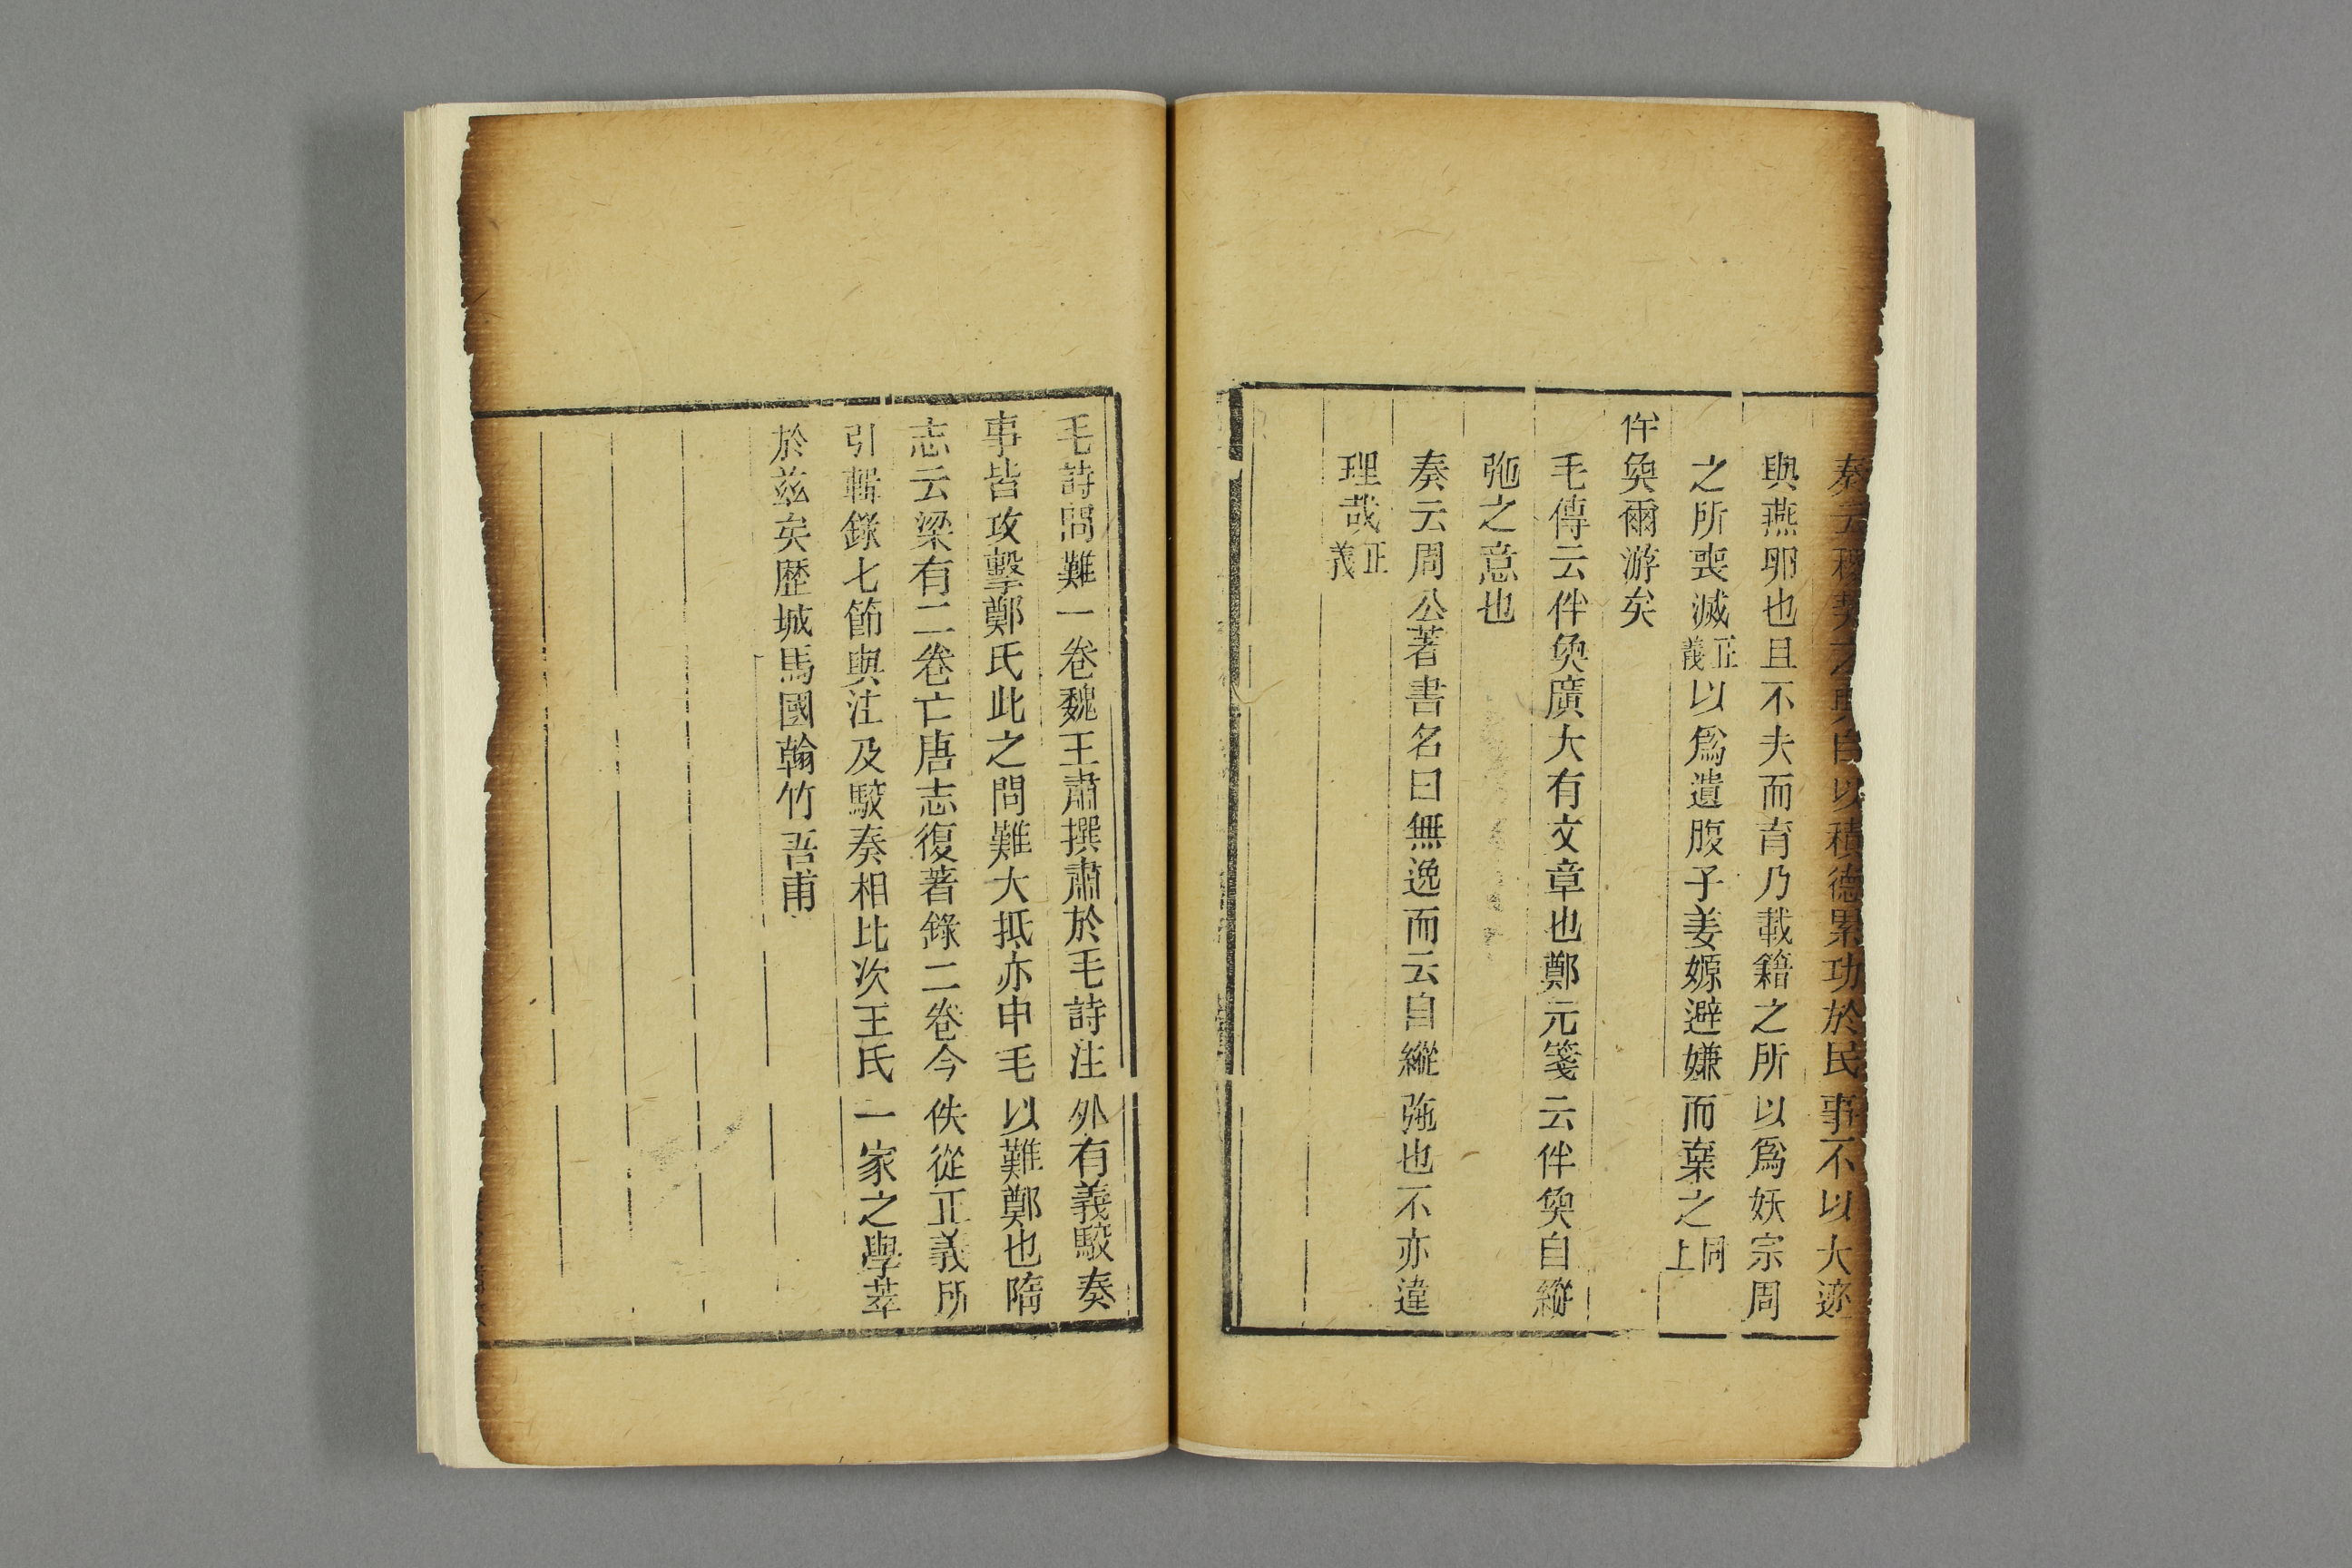 奏云稷契之興自以積德累功於民事不以大迹
與燕卵也且不夫而育乃載籍之所以爲妖宗周
之所喪滅正義以爲遺腹子姜嫄避嫌而棄之同上
伴奐爾游矣
毛傳云伴奐廣大有文章也鄭元箋云伴奐自縱
弛之意也
奏云周公著書名曰無逸而云自縱弛也不亦違
理哉正義
毛詩問難一卷魏王肅撰肅於毛詩注外有義駮奏
事皆攻擊鄭氏此之問難大抵亦申毛以難鄭也隋
志云梁有二卷亡唐志復著錄二卷今佚從正義所
引輯錄七節與注及駮奏相比次王氏一家之學萃
於兹矣歷城馬國翰竹吾甫